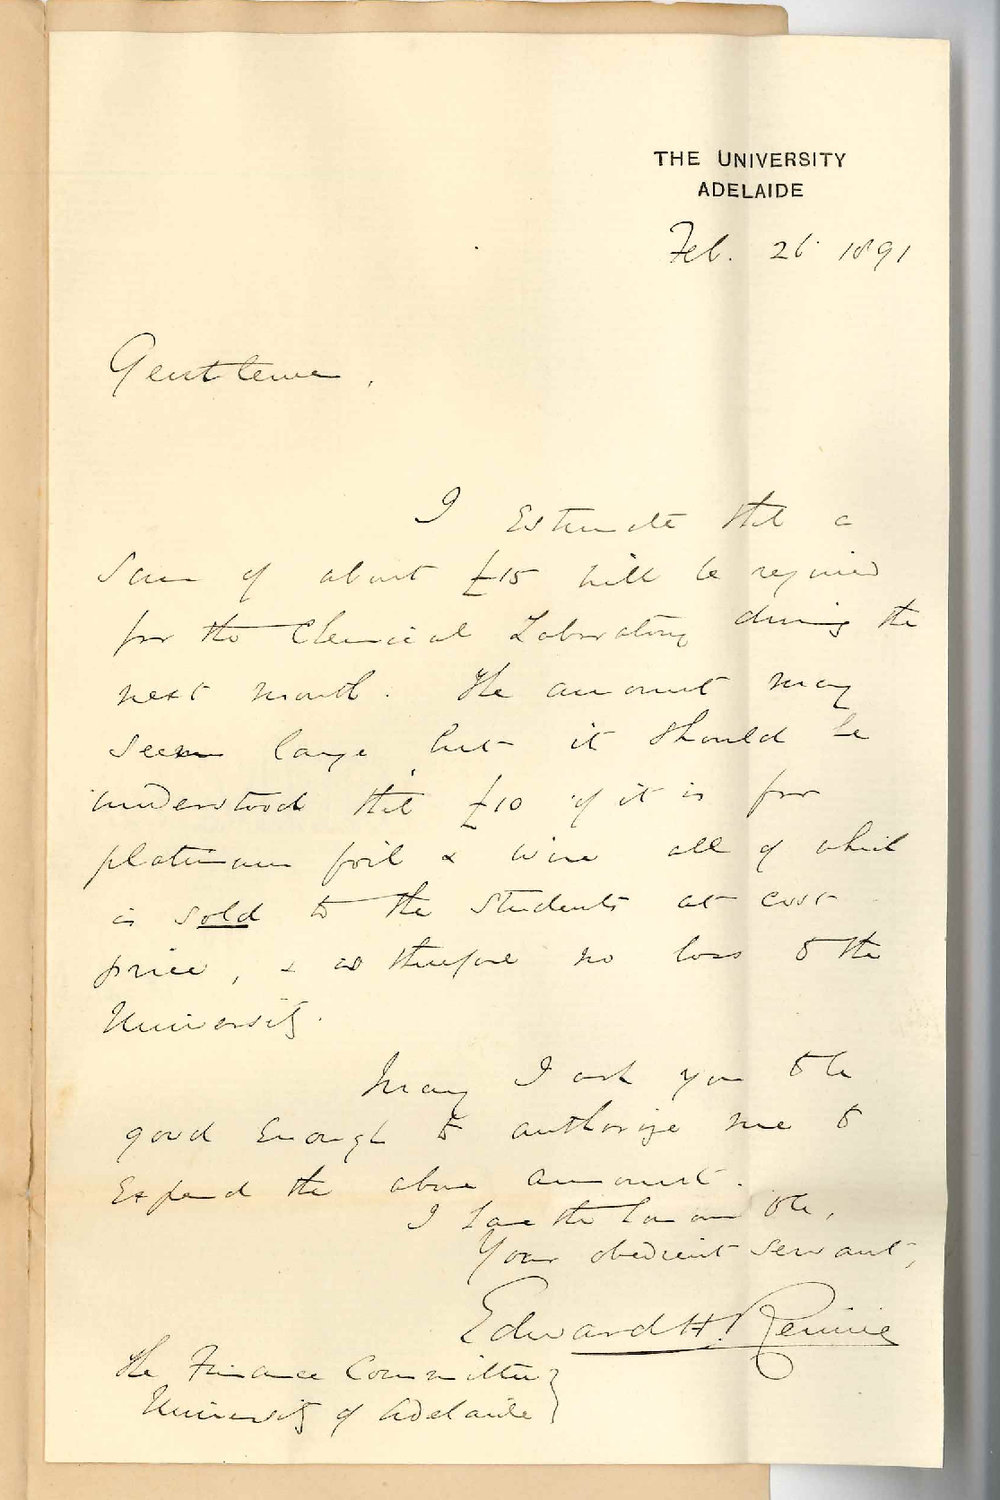 THE UNIVERSITY
ADELAIDE
Feb. 26 1891
Gentlemen,
I Estimate that a
Sum of about £15 will be required
for the Chemical Laboratory during the
next month. The amount may
seem large, but it should be
understood that £10 of it is for
platinum foil & wire all of which
is sold to the students at cost
price, & is therefore no loss to the
University.
May I ask you to be
good Enough to authorize me to
Expend the above amount.
I have the honour to be,
Your obedient servant,
Edward H. Rennie
The Finance Committee }
University of Adelaide }